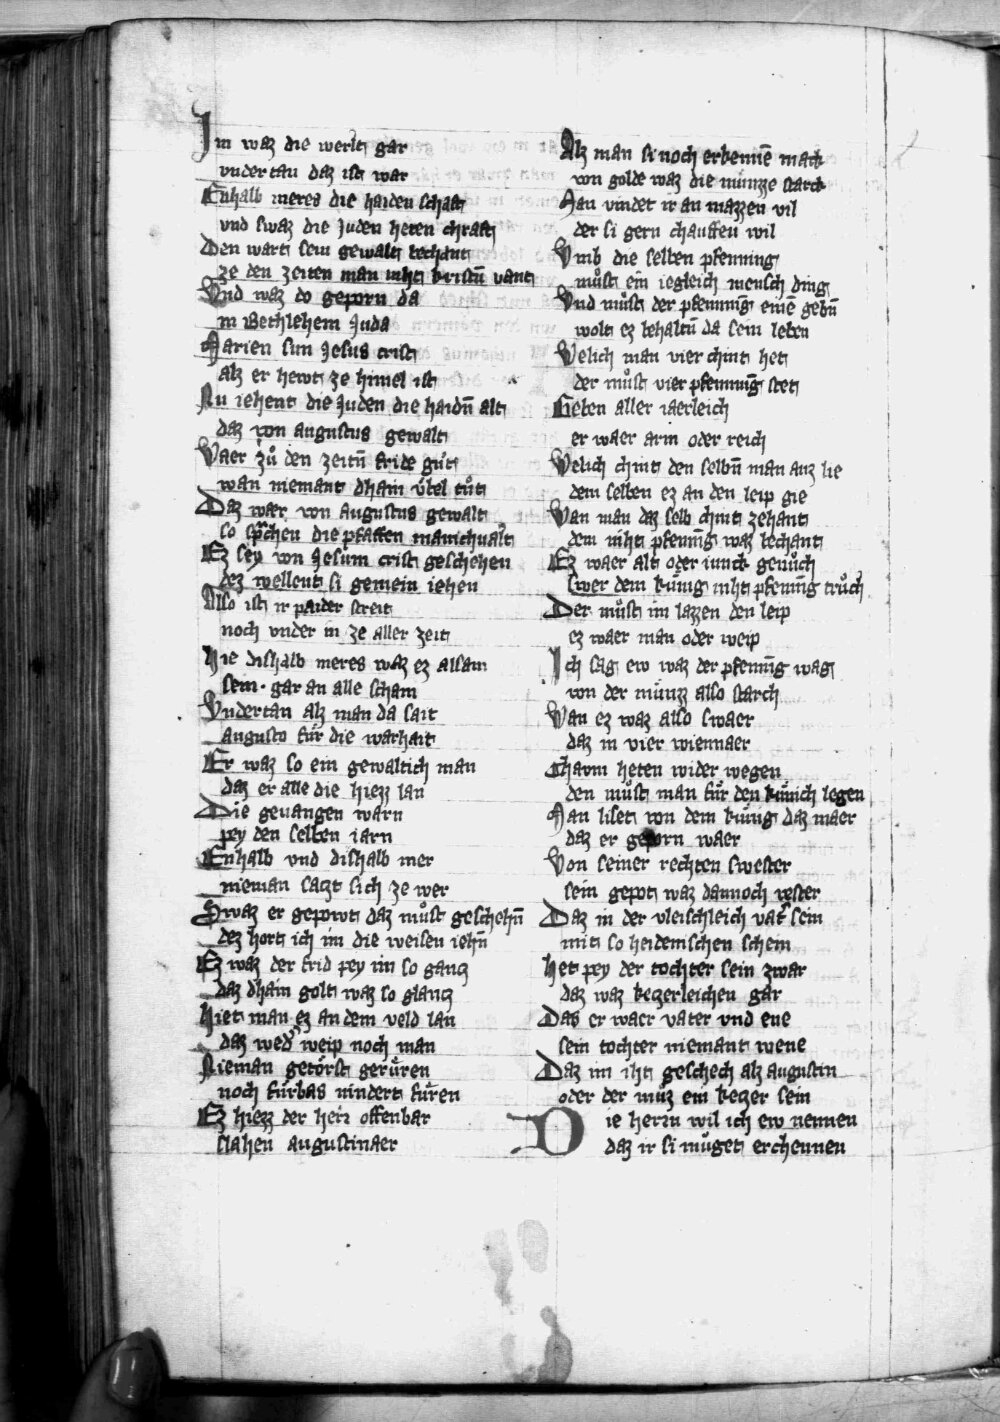 Im waz die werlt gar
vndertan daz ist war
Enhalb meres die haidenschaft
vnd swaz die Juden heten chraft
Den wart sein gewalt bechant
ze den zeiten man niht kristn̄ vant
Vnd waz do geporn da
in Bethlehem Juda
Marien sun Jesus crist
alz er hewt ze himel ist
Nu iehent die Juden die haidn̄ alt
daz von augustus gewalt
Waer zů den zeitn̄ fride gůt
wan niemant dhain vbel tůt
Daz waer von Augustus gewalt
so sprͣchen die pfaffen manichualt
Ez sey von Jesum crist geschehen
dez wellent si gemein iehen
Also ist ir paider streit
noch vnder in ze aller zeit
Hie dishalb meres waz ez alsam
sem gar an alle scham
Vndertan alz man da sait
augusto fůr die warhait
Er waz so ein gewaltich man
daz er alle die hiezz lan
Die geuangen warn
pey den selben iarn
Enhalb vnd dishalb mer
nieman satzt sich ze wer
Swaz er gepowt daz můst geschehn̄
dez hort ich im die weisen iehn̄
Ez waz der frid pey im so gantz
daz dhain golt waz so glantz
Hiet man ez an dem veld lan
daz wed͛ weip noch man
Nieman getorst gerůren
noch fůrbas nindert fůren
Ez hiezz der herr offenbar
slahen augustinaer
Alz man si noch erkennē mack
von golde waz die můnzze starck
Man vindet ir an mazzen vil
der si gern chauffen wil
Vmb die selben pfenning
můst ein iegleich mensch ding
Vnd můst der pfenning einē gebn̄
wolt ez behaltn̄ da sein leben
Welich man vier chint het
der můst vier pfenning stet
Geben aller iaerleich
er waer arm oder reich
Welich chint den selbn̄ man anz lie
dem selben ez an den leip gie
Wan man daz selb chint zehant
dem niht pfenning waz bechant
Ez waer alt oder iunck genůch
swer dem kůnig niht pfenning trůch
Der můst im lazzen den leip
ez waer man oder weip
Ich sag ew waz der pfenning wag
von der můnzz also starch
Wan ez waz also swaer
daz in vier wiennaer
Chavm heten wider wegen
den můst man fůr den kůnich legen
Man liset von dem kůnig daz maer
daz er geporn waer
Von seiner rechten swester
sein gepot waz dannoch vester
Daz in der vleischleich vat͛ sein
mit so heidenischen schein
Het pey der tochter sein zwar
daz waz ketzerleichen gar
Das er waer vater vnd ene
sein tochter niemant wene
Daz im iht geschech alz augustin
oder der můz ein ketzer sein
Die herrn wil ich ew nennen
daz ir si můget erchennen